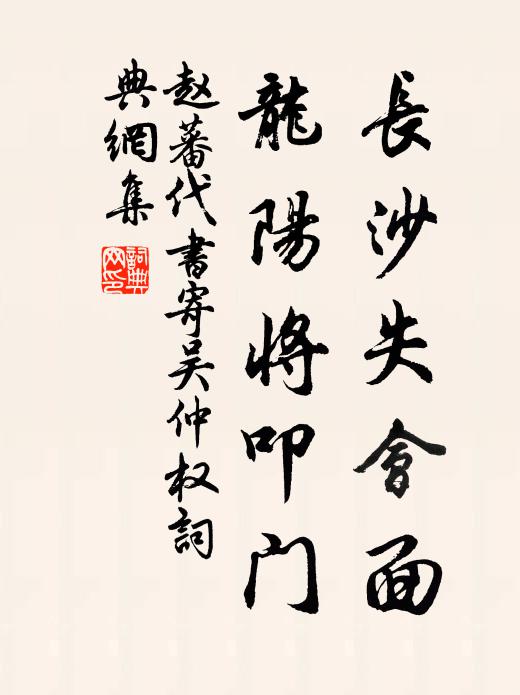 長沙失會面
龍陽將叩门
赵蕃代書寄吴仲权詞
典網集
詞典
网印